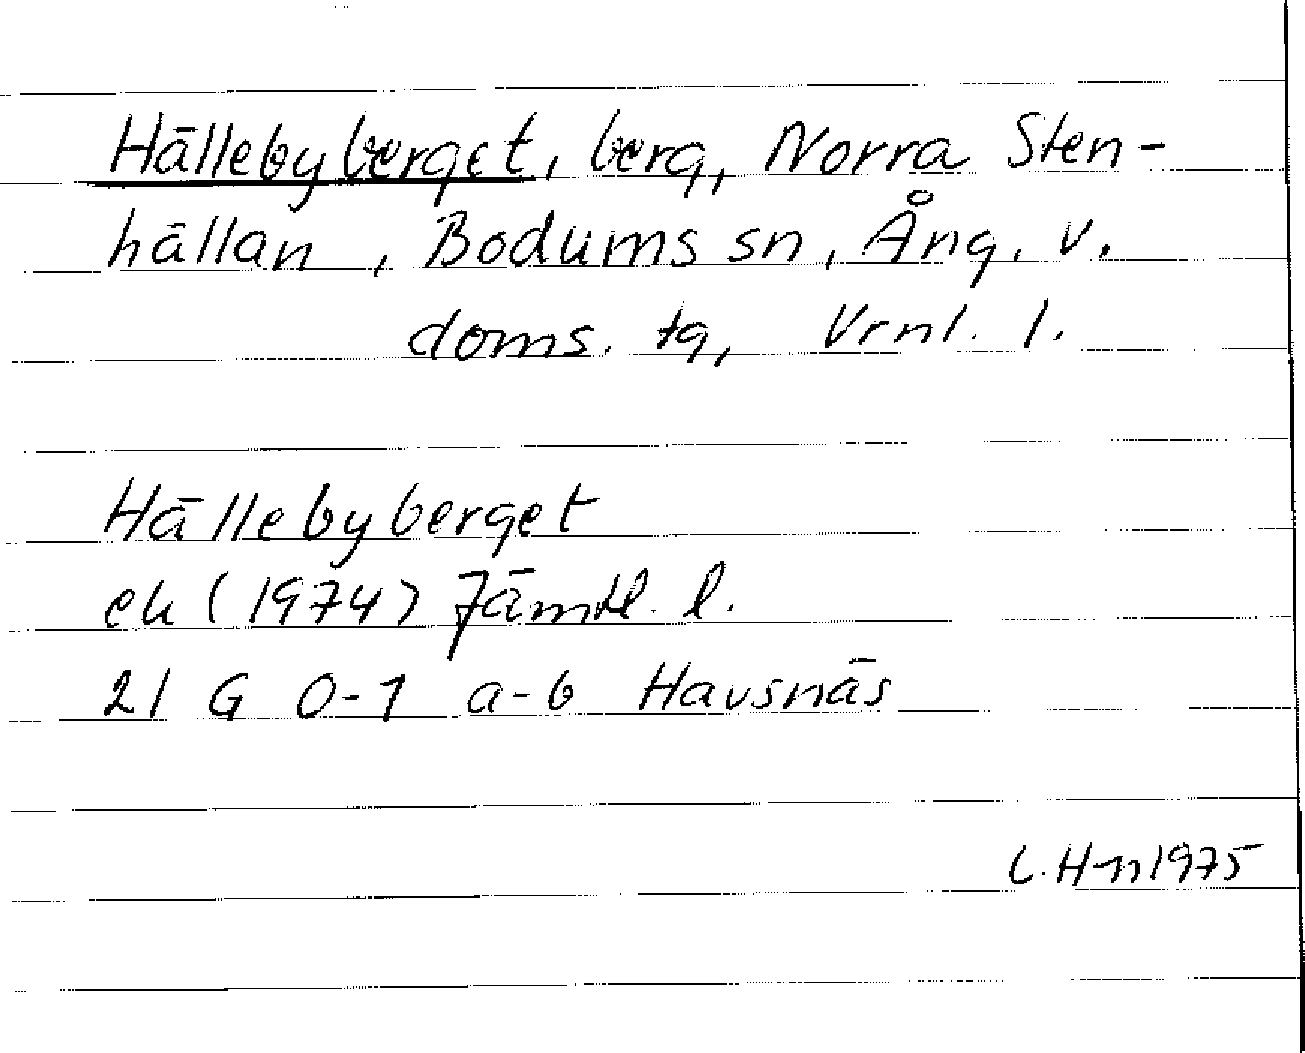 Hällebyberget, berg, Norra Sten-
hällan, Bodums sn, Ång. v.
doms. tg, Vrnl. l.
Hällebyberget
ek (1974) Jämtl. l.
21 G 0-1 a-b Havsnäs
C. H-n 1975